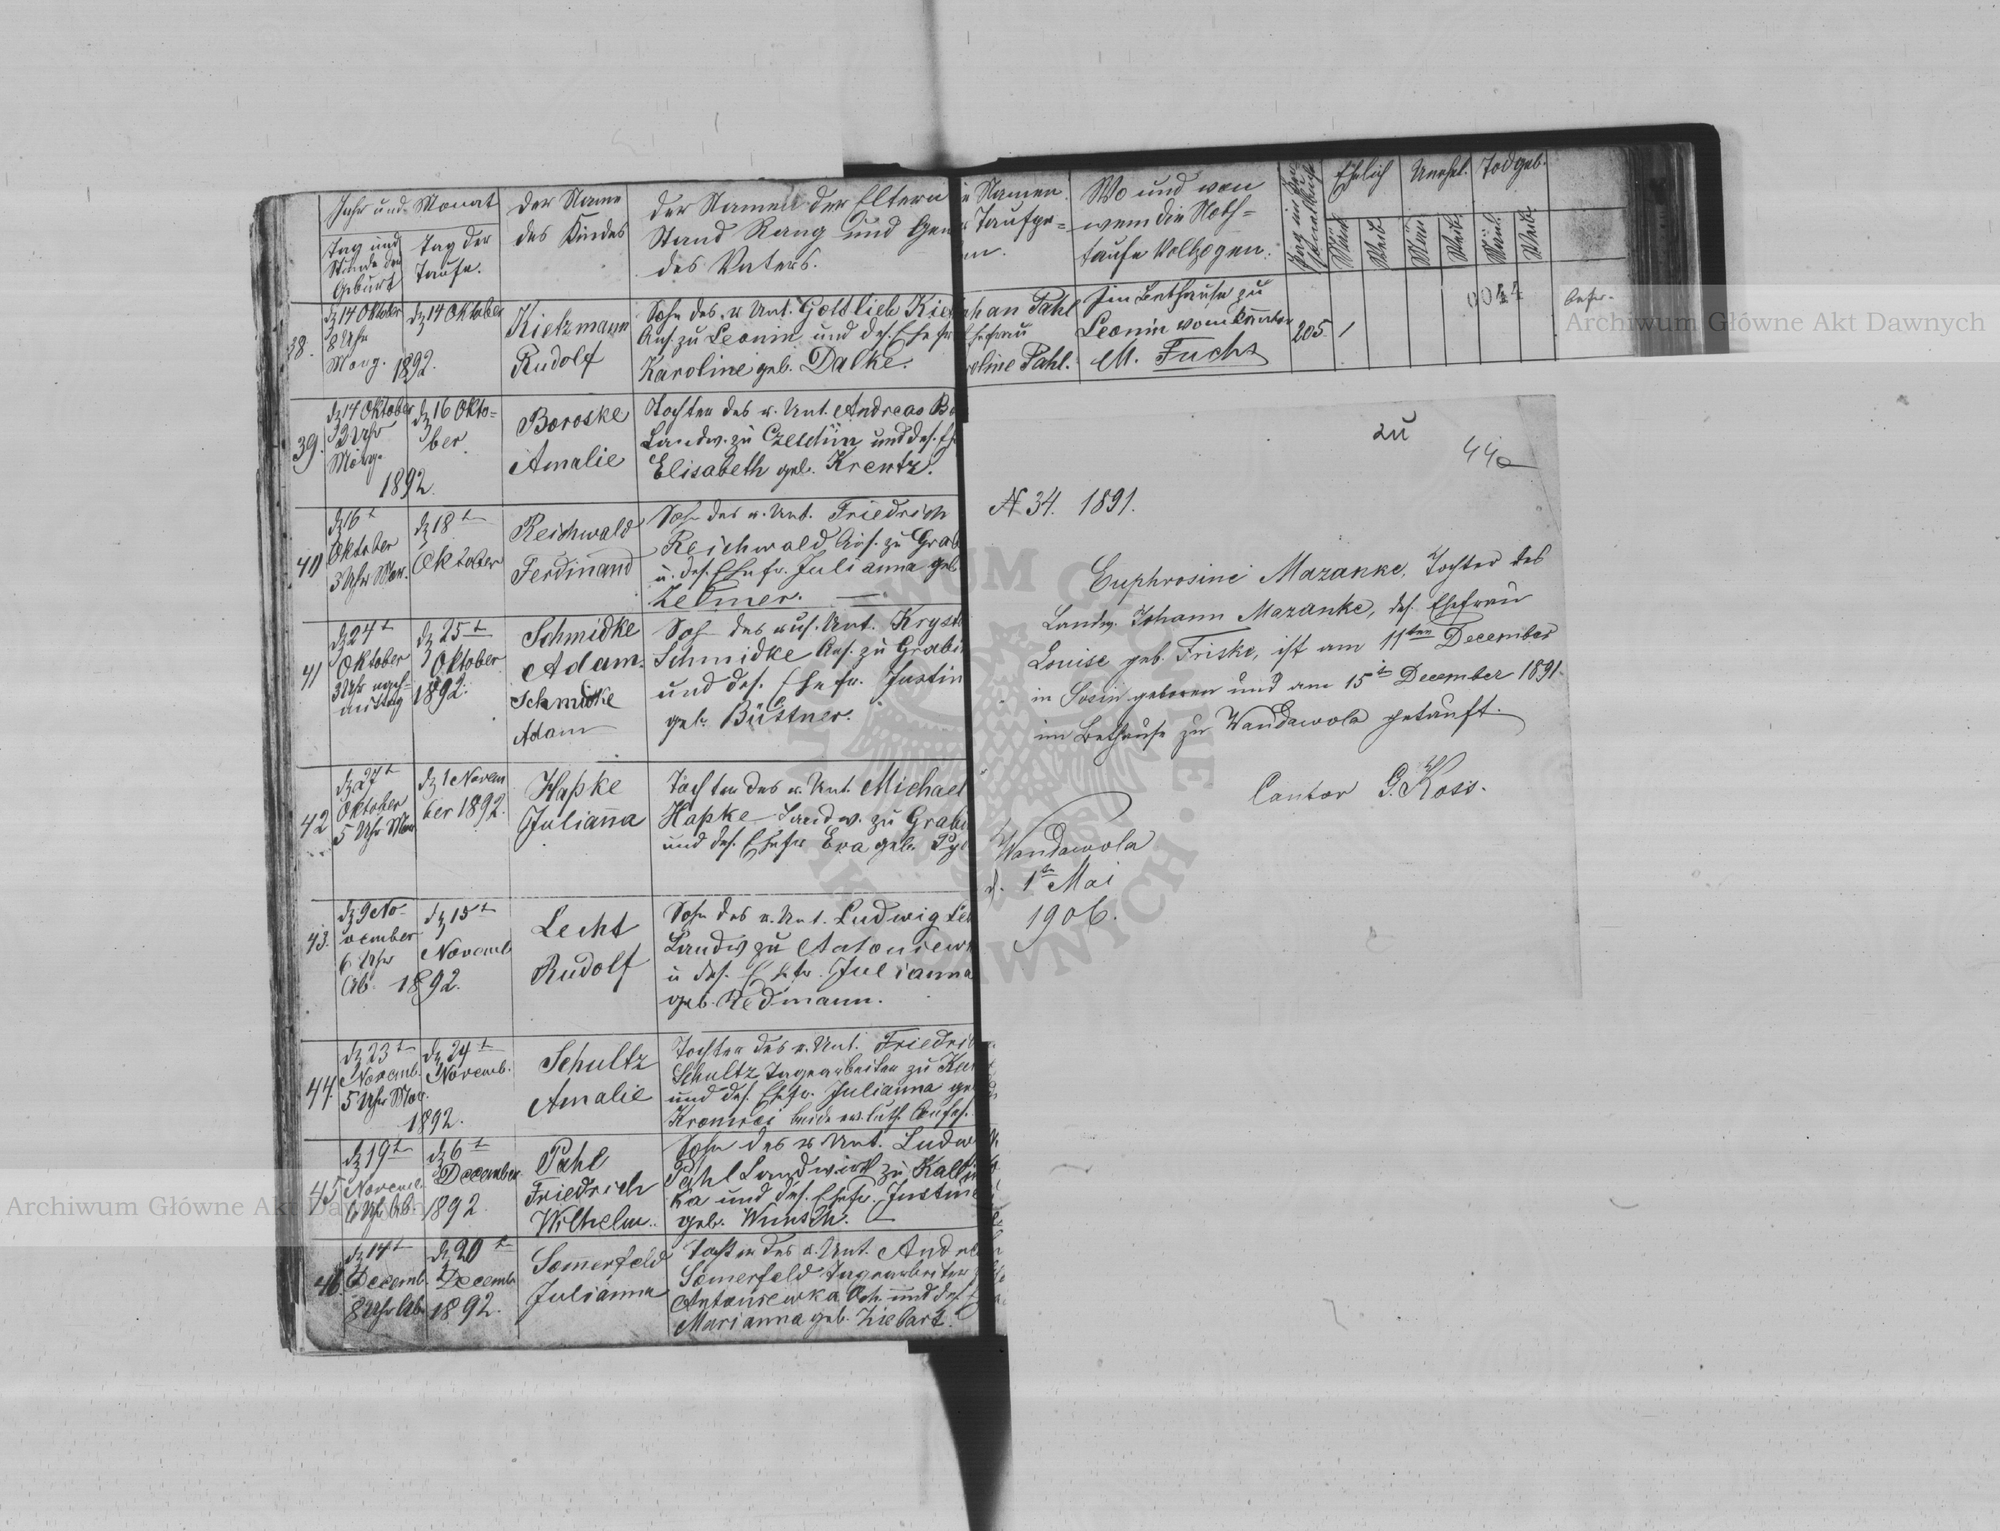 Jahr und Monat
Tag und
Stunde der
Geburt
Tag der
Taufe.
der Name
des Kindes
der Namen der Eltern
Stand Rang und Gew
des Vaters.
Namen
Taufge-
Wo und von
wem die Noth-
taufe Vollzogen.
Ehelich
Unehel.
Todgeb.
Weib.
Weib.
Weib.
38.
dz 14 Oktober
8 Uhr
Morg. 1892.
dz 14 Oktober
Kietzmann
Rudolf
Sohn des. u Unt. Gottlieb Kie
Ans. zu Leonin und des. Ehefr
Karoline geb. Dalke.
Johan Pahl
Ehefrau
Karoline Pahl.
Im Bethause zu
Leonin vom Kantor
M. Fuchs
205.
1
0044
39.
dz 14 Oktober
Morg.
1892
dz 16 Okto-
ber.
Boroske
Amalie
Tochter des u. Unt. Andreas Bo
Landw. zu und des. Eh
Elisabeth geb. Krentz.
40
dz 16t
Oktober
3 Uhr Mor.
dz 18t
Oktober
Reichwald
Ferdinand
Sohn des u. Unt. Friedrich
Reichwald Ans. zu Grab
u. des. Ehefr. Julianna geb
Zelmer.
41
dz 24t
Oktober
3 Uhr nach-
mittag
dz 25t
Oktober
1892.
Schmidke
Adam.
Schmidke
Adam
Sohn des aus. Unt. Kryst
Schmidke Ans. zu Grabi
und des. Ehefr. Justin
geb. Büttner.
42
dz 27t
Oktober
5 Uhr Mor.
dz 1 Novem
ber 1892.
Hapke
Julianna
Tochter des u. Unt. Michael
Hapke Landw. zu Grab
und des. Ehefr Eva geb.
43.
dz 9 No-
vember
6 Uhr
Ab. 1892.
dz 15t
Novemb
Lecht
Rudolf
Sohn des u. Unt. Ludwig Le
Landw zu Antoniew
u des. Ehefr. Julianna
geb. Redmann.
44.
dz 23t
Novemb.
5 Uhr Mor.
1892.
dz 24t
Novemb.
Schultz
Amalie
Tochter des u. Unt. Friedri
Schultz Tagearbeiter zu
und des. Ehefr. Julianna ge
beide ev. luth. Confes.
45
dz 19t
Novemb.
6 Uhr Ab.
dz 6t
December
1892
Pahl
Friedrich
Wilhelm.
Sohn des u Unt. Ludw
Pahl Landwirth zu
ka und des. Ehefr. Justine
geb. Wunsch.
46.
dz 14t
Decemb.
8 Uhr Ab.
dz 20t
Decemb
1892.
Somerfeld
Julianna
Tochter des u. Unt. Andre
Somerfeld Tagearbeiter
Antoniewka und des
Marianna geb. Ziebart.
zu 44a
N 34. 1891.
Euphrosine Mazanke, Tochter des
Landw. Johann Mazanke, des. Ehefrau
Louise geb. Friske, ist am 11ten December
in Sosin geboren und am 15t December 1891.
im Bethause zu Wandawola getauft.
Cantor G. Koss.
Wandawola
d. 1ten Mai
1906.
Archiwum Główne Akt Dawnych
Archiwum Główne Akt Dawnych
ARCHIWUM GŁÓWNE AKT DAWNYCH